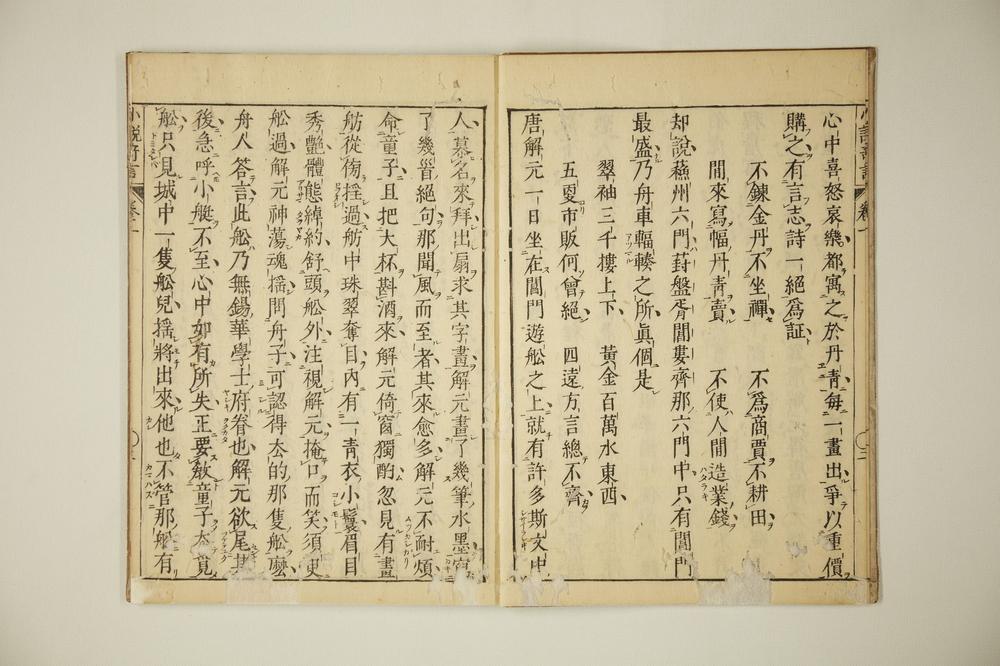 心中喜怒哀樂都寓之於丹青每一畫出爭以重價
購之有言志詩一絕爲証
不鍊金丹不坐禪 不爲商賈不耕田
閒來寫幅丹青賣 不使人間造業錢
却說蘓州六門葑盤胥閶婁齊那六門中只有閶門
最盛乃舟車輻輳之所眞個是
翠袖三千樓上下 黃金百萬水東西
五更市販何曾絕 四遠方言總不齊
唐解元一日坐在閶門遊舩之上就有許多斯文中
人慕名來拜出扇求其字畫解元畫了幾筆水墨寫
了幾首絕句那聞風而至者其來愈多解元不耐煩
命童子且把大杯斟酒來解元倚窗獨酌忽見有畫
舫從傍摇過舫中珠翠奪目內有一青衣小鬟眉目
秀艷體態綽約舒頭舩外注視解元掩口而笑須臾
舩過解元神蕩魂摇問舟子可認得去的那隻舩麼
舟人答言此舩乃無錫華學士府眷也解元欲尾其
後急呼小艇不至心中如有所失正要敎童子去覓
舩只見城中一隻舩兒摇將出來他也不管那舩有